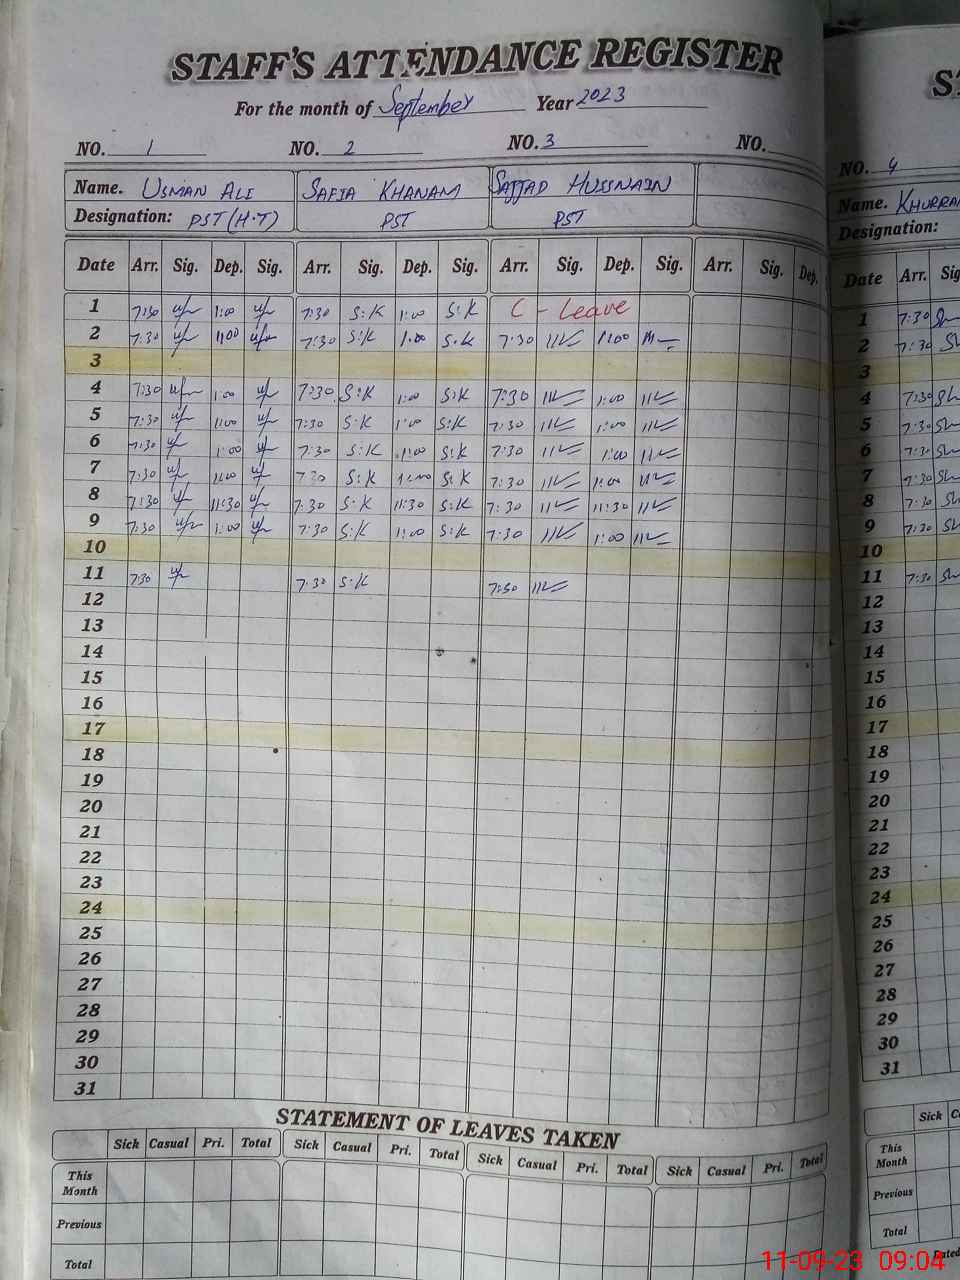 STAFF'S ATTENDANCE REGISTER
For the month of September Year 2023
NO. 1 NO. 2 NO. 3 NO.
Name. USMAN ALI SAFIA KHANAM SAJJAD HUSSNAIN
Designation: PST (H.T) PST PST
Date Arr. Sig. Dep. Sig. Arr. Sig. Dep. Sig. Arr. Sig. Dep. Sig. Arr. Sig. Dep.
1 7:30 1:00 7:30 S:K 1:00 S:K C - Leave
2 7:30 1:00 7:30 S:K 1:00 S:K 7:30 1:00
3
4 7:30 1:00 7:30 S:K 1:00 S:K 7:30 1:00
5 7:30 1:00 7:30 S:K 1:00 S:K 7:30 1:00
6 7:30 1:00 7:30 S:K 1:00 S:K 7:30 1:00
7 7:30 1:00 7:30 S:K 1:00 S:K 7:30 1:00
8 7:30 11:30 7:30 S:K 11:30 S:K 7:30 11:30
9 7:30 1:00 7:30 S:K 1:00 S:K 7:30 1:00
10
11 7:30 7:30 S:K 7:30
12
13
14
15
16
17
18
19
20
21
22
23
24
25
26
27
28
29
30
31
STATEMENT OF LEAVES TAKEN
Sick Casual Pri. Total Sick Casual Pri. Total Sick Casual Pri. Total Sick Casual Pri. Total
This Month
Previous
Total
NO. 4
Name.
Designation:
Date Arr.
1 7:30
2 7:30
3
4 7:30
5 7:30
6 7:30
7 7:30
8 7:30
9 7:30
10
11 7:30
12
13
14
15
16
17
18
19
20
21
22
23
24
25
26
27
28
29
30
31
Sick
This Month
Previous
Total
11-09-23 09:04